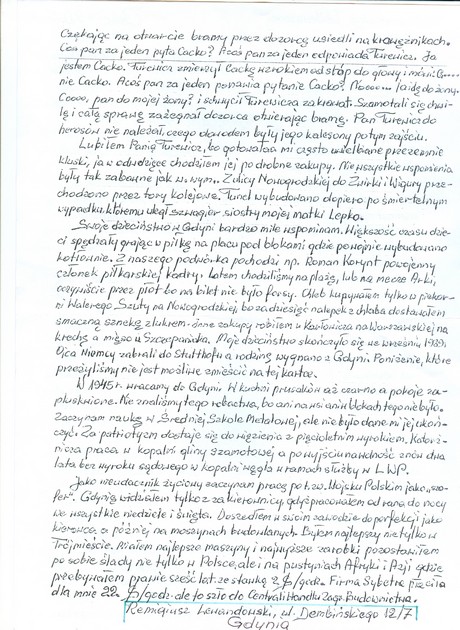 Czekając na otwarcie bramy przez dozorcę usiedli na krawężnikach.
Coś pan za jeden pyta Cacko? A coś pan za jeden odpowiada Turewicz. Ja
jestem Cacko. Turewicz zmierzył Cackę wzrokiem od stóp do głowy i mówi: G....
nie Cacko. A coś pan za jeden ponawia pytanie Cacko? Noooo.... ja idę do żony.
Coooo, pan do mojej żony? i schwycił Turewicza za krawat. Szamotali się chwi-
lę i całą sprawę zażegnał dozorca otwierając bramę. Pan Turewicz do
herosów nie należał, czego dowodem były jego kalesony po tym zajściu.
Lubiłem Panią Turewicz, bo gotowała mi często uwielbiane przeze mnie
kluski, ja w odwecie chodziłem jej po drobne zakupy. Nie wszystkie wspomnienia
były tak zabawne jak w. wym.. Z ulicy Nowogrodzkiej do Żwirki i Wigury prze-
chodzono przez tory kolejowe. Tunel wybudowano dopiero po śmiertelnym
wypadku, któremu uległ szwagier siostry mojej matki Lepko.
Swoje dzieciństwo w Gdyni bardzo miło wspominam. Większość czasu dzie-
ci spędzały grając w piłkę na placu pod blokami gdzie po wojnie wybudowano
kotłownię. Z naszego podwórka pochodzi np. Roman Korynt powojenny
członek piłkarskiej kadry. Latem chodziliśmy na plażę, lub na mecze Arki,
oczywiście przez płot bo na bilet nie było forsy. Chleb kupowałem tylko w piekar-
ni Walerego Szuty na Nowogrodzkiej, bo za dziesięć nalepek z chleba dostawałem
smaczną sznekę z lukrem. Inne zakupy robiłem u Kastowicza na Warszawskiej na
krechę, a mięso u Szczepańska. Moje dzieciństwo skończyło się we wrześniu 1939r.
Ojca Niemcy zabrali do Stutthofu a rodzinę wygnano z Gdyni. Poniżenie, które
przeżyliśmy nie jest możliwe zmieścić na tej kartce.
W 1945r. wracamy do Gdyni. W kuchni prusaków aż czarno a pokoje za-
pluskwione. Nie znaliśmy tego robactwa, bo ani na wsi ani w blokach tego nie było.
Zaczynam naukę w Średniej Szkole Metalowej, ale nie było dane mi jej skoń-
czyć. Za patriotyzm dostaję się do więzienia z pięcioletnim wyrokiem. Katorż-
nicza praca w kopalni gliny szamotowej a po wyjściu na wolność znów dwa
lata bez wyroku sądowego w kopalni węgla w ramach służby w L.W.P.
Jako nieudacznik życiowy zaczynam pracę po t.zw. Wojsku Polskim jako „szo-
fer". Gdynię widziałem tylko z za kierownicy, gdyż pracowałem od rana do nocy
we wszystkie niedziele i święta. Doszedłem w swoim zawodzie do perfekcji jako
kierowca, a później na maszynach budowlanych. Byłem najlepszy nie tylko w
Trójmieście. Miałem najlepsze maszyny i najwyższe zarobki pozostawiłem
po sobie ślady nie tylko w Polsce, ale i na pustyniach Afryki i Azji gdzie
przebywałem prawie sześć lat ze stawką 2 $/godz. Firma Sybetra płaciła
dla mnie 22 $/godz. ale to szło do Centrali Handlu Zagr. Budownictwa.
Remigiusz Lewandowski, ul. Dembińskiego 12/7
Gdynia